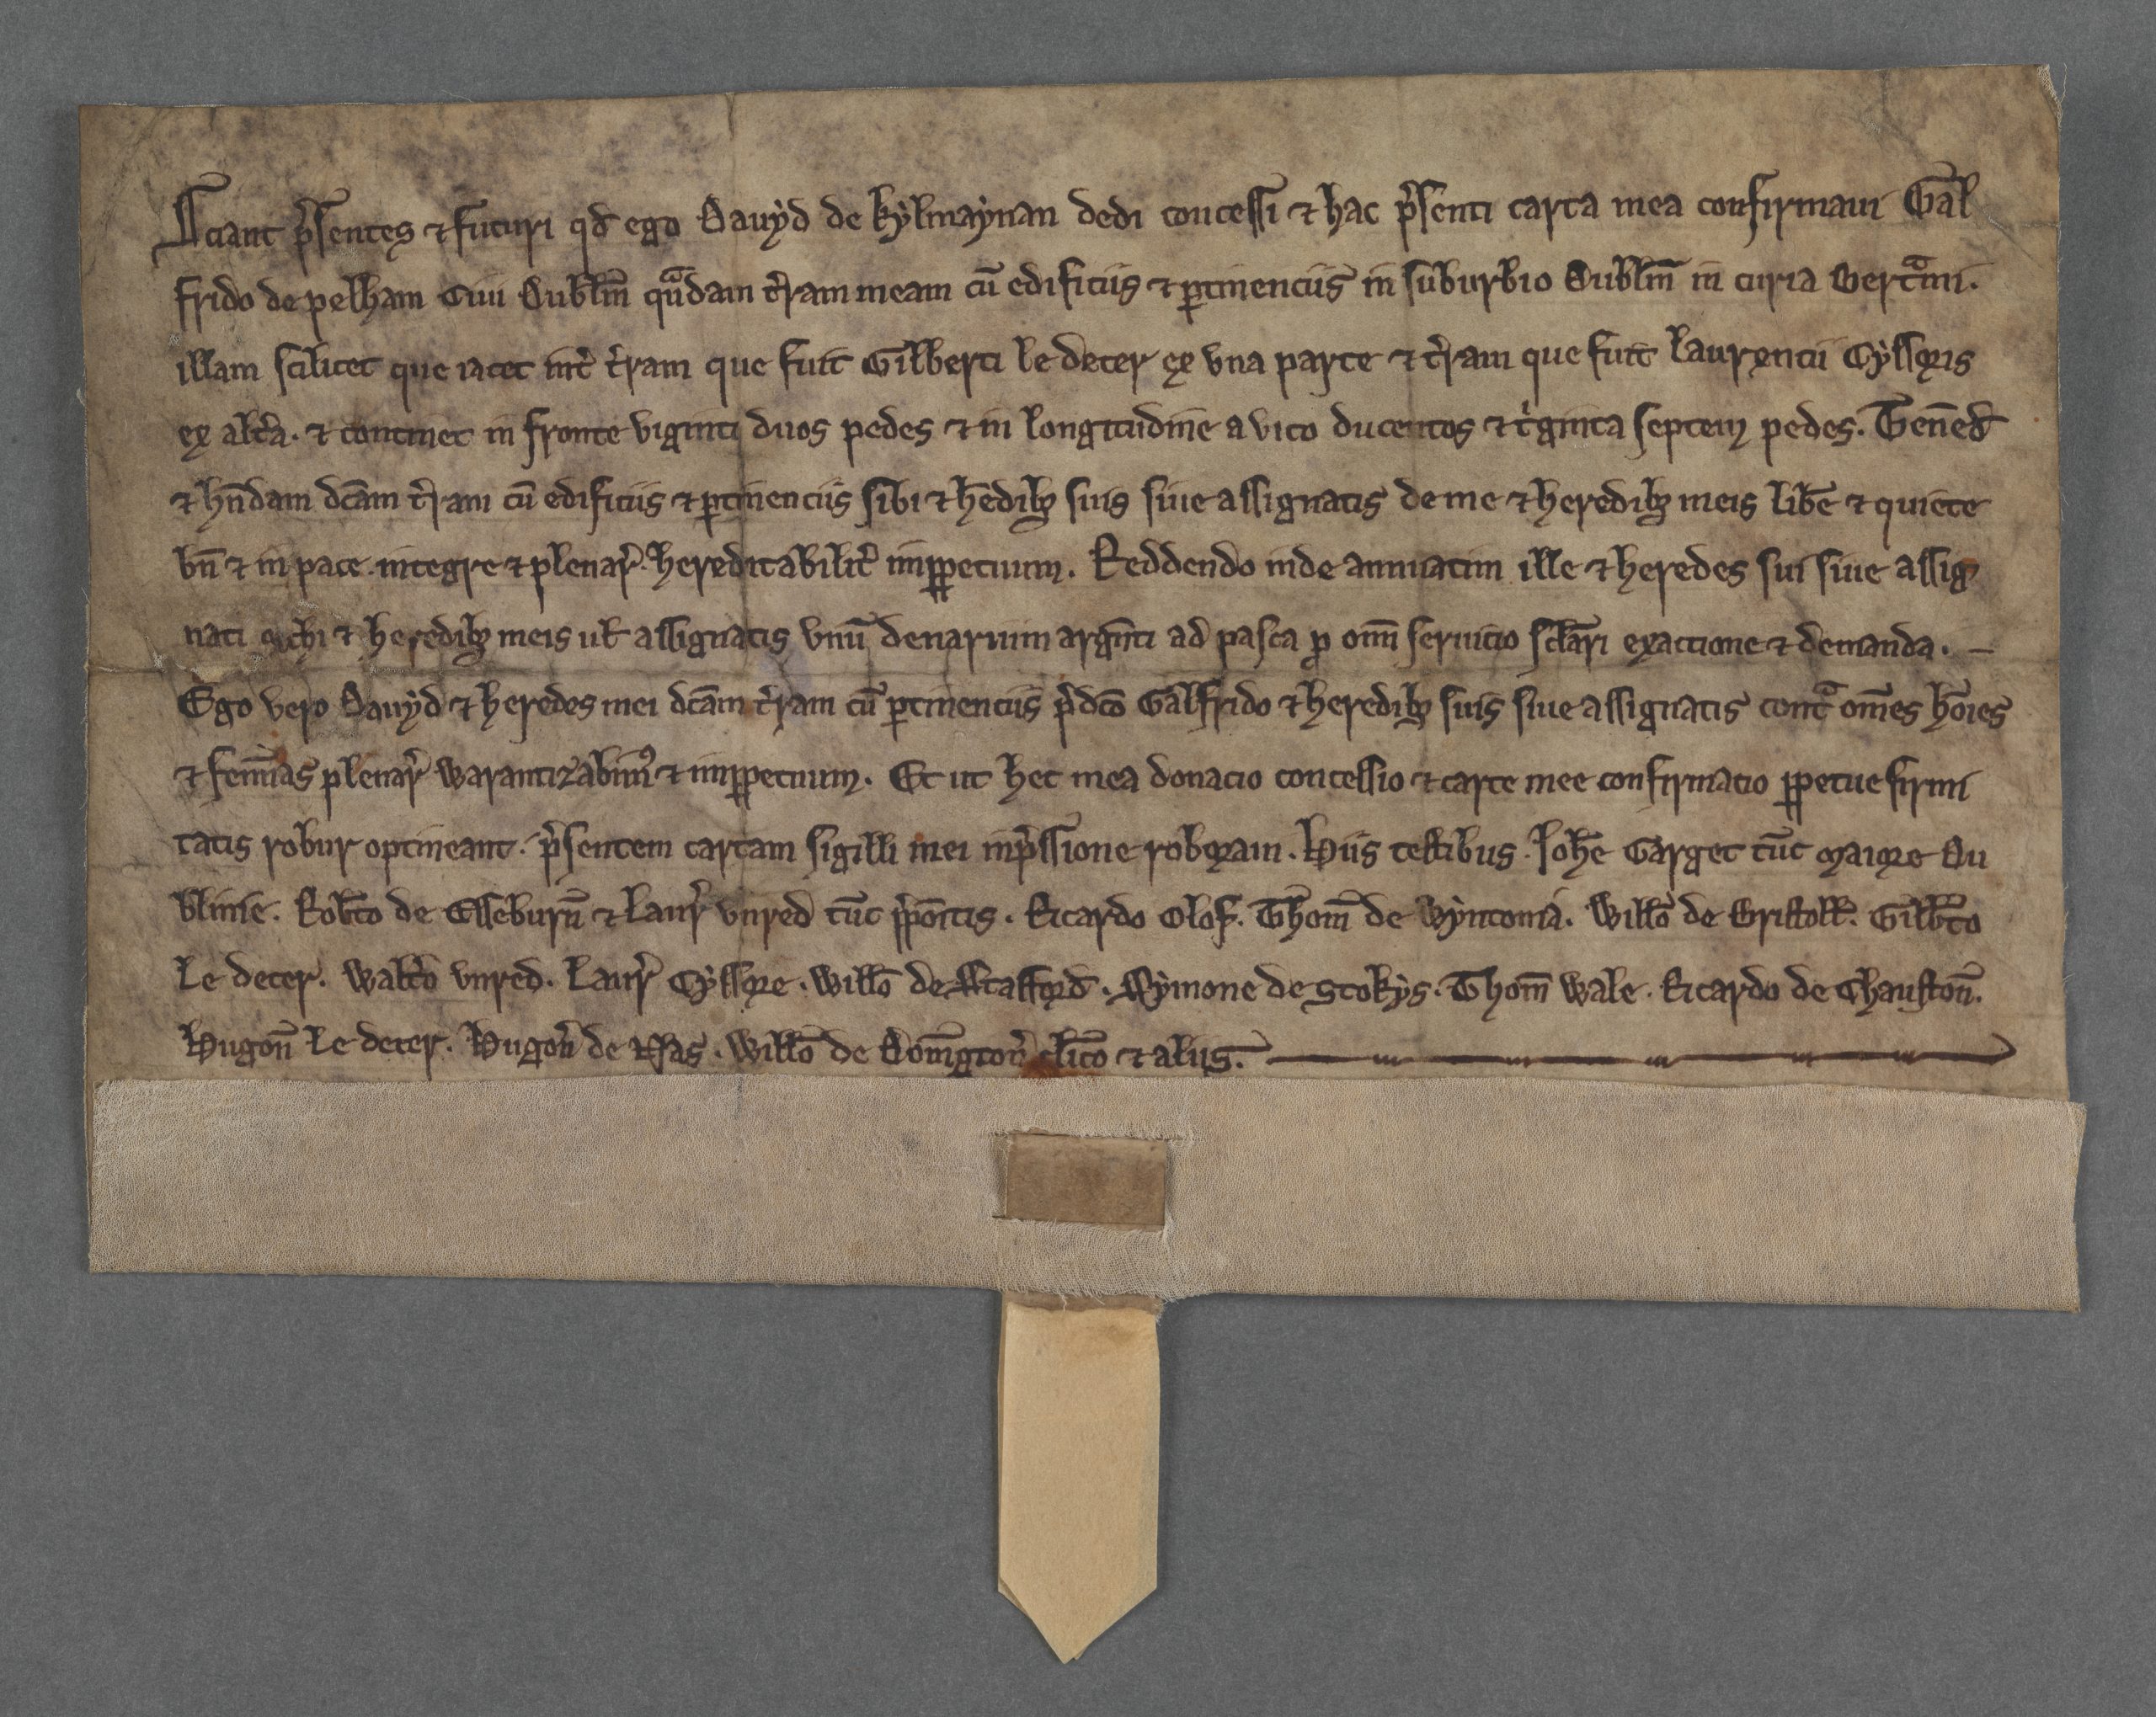 Sciant p̄sentes ⁊ futuri qđ ego Dauyd de kylmaynan dedi concessi ⁊ hac p̄senti carta mea confirmaui Gal
frido de pelham Ciui Dubliñ quᵃ̄dam t̄ram meam cū edificiis ⁊ ꝑtinenciis in suburbio Dubliñ in curia Bertᵃmi.
illam scilicet que iacet int̄ t̄ram que fuit Gilberti le deter ex vna parte ⁊ t̄ram que fuit laurencii Cyssoris
ex alt̄a. ⁊ continet in fronte viginti duos pedes ⁊ in longitudine a vico ducentos ⁊ tⁱginta septem pedes. Teneñd
⁊ hñdam dc̄am t̄ram cū edificiis ⁊ ꝑtinenciis sibi ⁊ h̄edibꝫ suis siue assignatis de me ⁊ heredibꝫ meis lib̄e ⁊ quiete
bñ ⁊ in pace. integre ⁊ plenar̄. hereditabilit̄ inꝑpetuum. Reddendo inde annuatim ille ⁊ heredes sui siue assig
nati michi ⁊ heredibꝫ meis ul̄ assignatis vnū denarium argn̄ti ad pasca ꝓ om̄i seruicio sclāri exactione ⁊ demanda. —
Ego vero Dauyd ⁊ heredes mei dc̄am t̄ram cū ꝑtinenciis p̄dc̄o Galfrido ⁊ heredibꝫ suis siue assignatis contᵃ om̄es hōies
⁊ femīas plenar̄ warantizabimꝰ ⁊ inꝑpetuum. Et ut hec mea donacio concessio ⁊ carte mee confirmatio ꝑpetue firmi
tatis robur optineant. p̄sentem cartam sigilli mei inp̄ssione roboraui. Hiis testibus. Joh̄e Garget tūc maiore Du
blinie. Rob̄to de Esseburñ ⁊ Laur̄ vnred tūc p̄pōitis. Ricardo Olof. Thom̄ de Wyntonia. Willo̅ de Bristoll̄. Gilb̄to
le deter. Walt̄o vnred. Laur̄ Cyssore. Willo̅ de Stafford̄. Symone de Stokys. Thom̄ Wale. Ricardo de Chaustoñ.
Hugoñ le deter. Hugoñ de Nas. Willo̅ de Donīgtoñ cl̄ico ⁊ aliis.